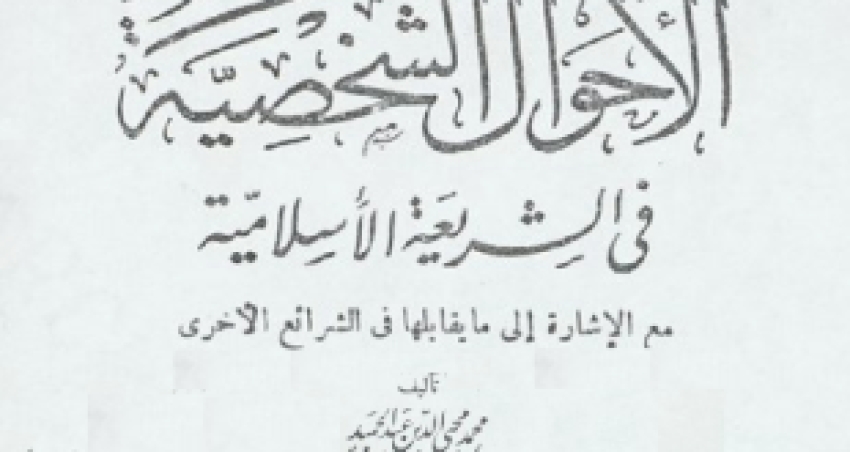 الأحوال الشخصيّة
في الشريعَة الأسِلاميّة
مع الإشارة إلى ما يقابلها فى الشرائع الأخرى
تأليف
محمد محيى الدين عبد الحميد